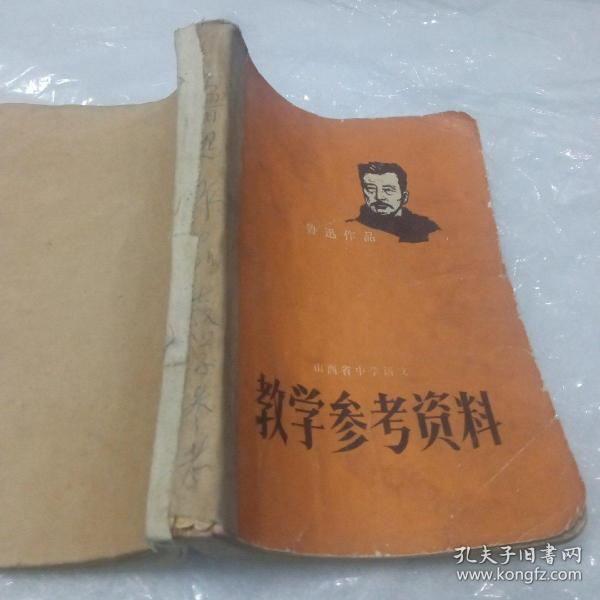 鲁迅作品
山西省中学语文
教学参考资料
鲁迅作品教学参考
孔夫子旧书网
www.kongfz.com